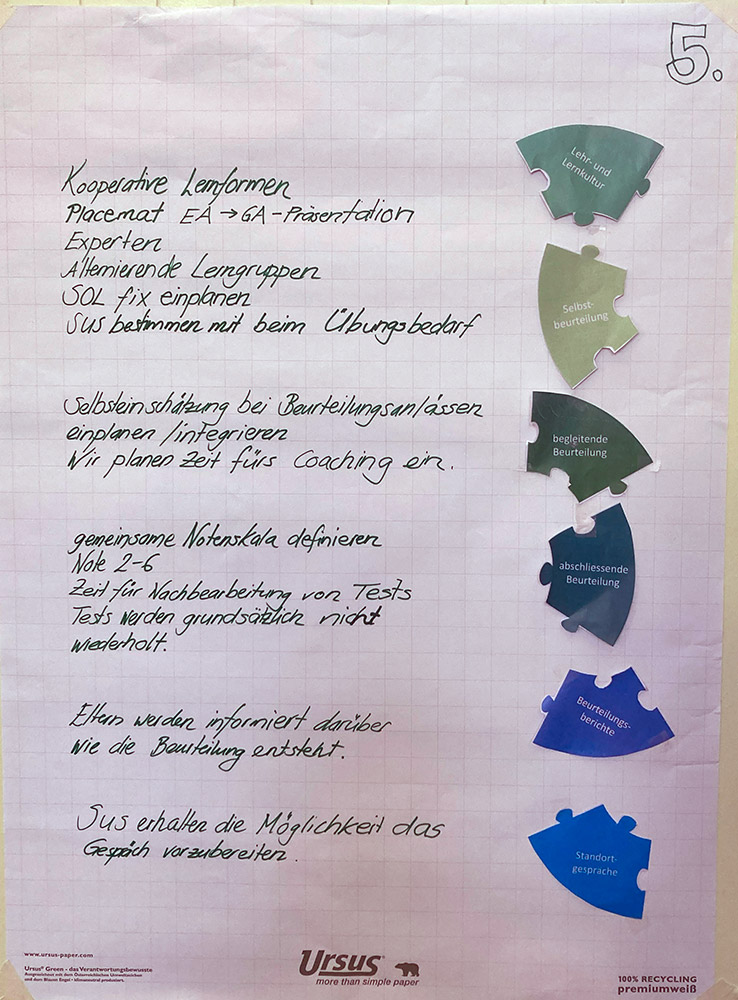 5.
Lehr- und
Lernkultur
Kooperative Lernformen
Placemat EA → GA - Präsentation
Experten
Alternierende Lerngruppen
SOL fix einplanen
SuS bestimmen mit beim Übungsbedarf
Selbst-
beurteilung
Selbsteinschätzung bei Beurteilungsanlässen
einplanen / integrieren
Wir planen Zeit fürs Coaching ein.
begleitende
Beurteilung
gemeinsame Notenskala definieren
Note 2-6
Zeit für Nachbearbeitung von Tests
Tests werden grundsätzlich nicht
wiederholt.
abschliessende
Beurteilung
Eltern werden informiert darüber
wie die Beurteilung entsteht.
Beurteilungs-
berichte
Sus erhalten die Möglichkeit das
Gespräch vorzubereiten.
Standort-
gespräche
www.ursus-paper.com
Ursus® Green - das Verantwortungsbewusste
Ausgezeichnet mit dem Österreichischen Umweltzeichen
und dem Blauen Engel - klimaneutral produziert.
Ursus®
more than simple paper
100% RECYCLING
premiumweiß